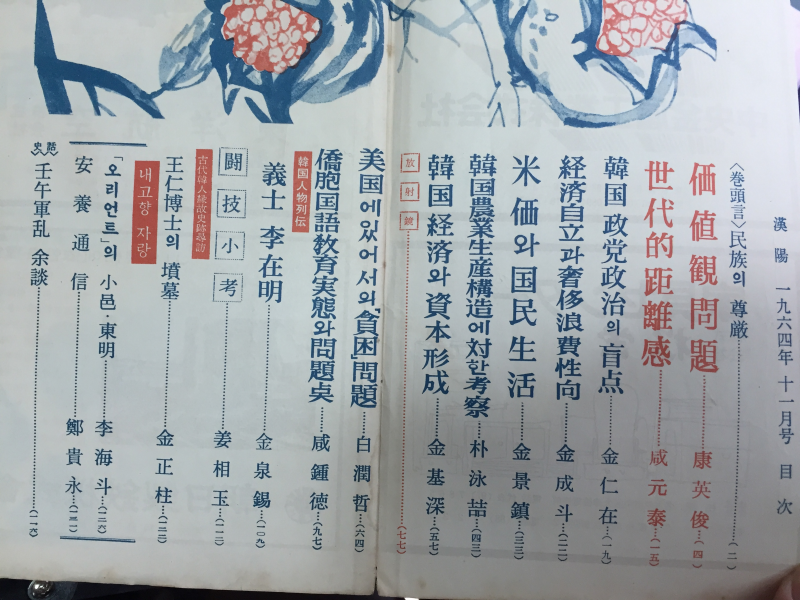 漢陽 一九六四年 十一月号 目次
〈巻頭言〉民族의 尊厳……(一)
価値観問題……康英俊…(四)
世代的距離感……咸元泰…(一五)
韓国政党政治의 盲点……金仁在…(一九)
経済自立과 奢侈浪費性向……金成斗…(二二)
米価와 国民生活……金景鎮…(三三)
韓国農業生産構造에 対한 考察……朴泳喆…(四三)
韓国経済와 資本形成……金基深…(五七)
放射鏡……(七七)
美国에 있어서의「貧困」問題……白潤哲…(六四)
僑胞国語教育実態와 問題点……咸鍾徳…(九七)
韓国人物列伝
義士 李在明……金泉錫…(一〇九)
闘技小考……姜相玉…(一一二)
古代韓人縁故史跡尋訪
王仁博士의 墳墓……金正柱…(一二二)
내고향 자랑
「오리언트」의 小邑・東明……李海斗…(一二六)
安養通信……鄭貴永…(一三一)
史話
壬午軍乱 余談……(一一六)